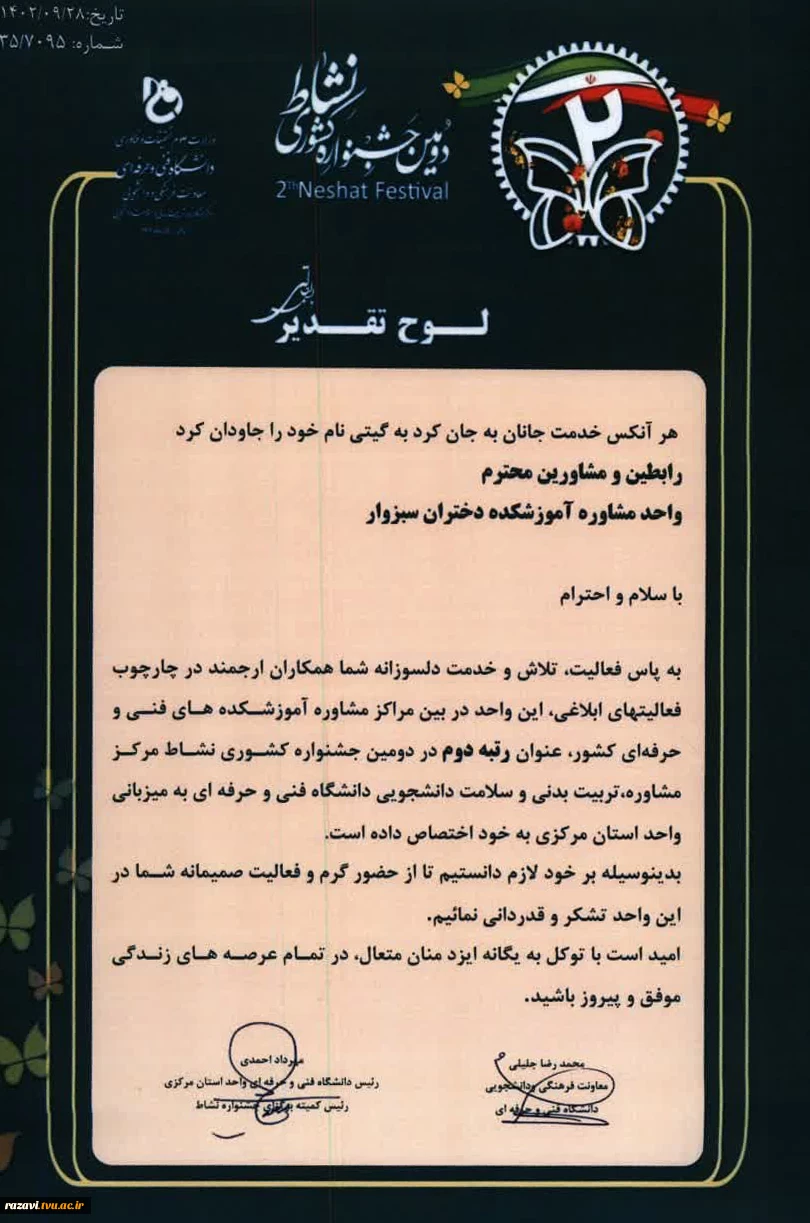 تاریخ: ۱۴۰۲/۰۹/۲۸
شماره: ۳۵/۷۰۹۵
دومین جشنواره کشوری نشاط
2th Neshat Festival
۲
وزارت علوم تحقیقات و فناوری
دانشگاه فنی و حرفه‌ای
معاونت فرهنگی و دانشجویی
لوح تقدیر
هر آنکس خدمت جانان به جان کرد به گیتی نام خود را جاودان کرد
رابطین و مشاورین محترم
واحد مشاوره آموزشکده دختران سبزوار
با سلام و احترام
به پاس فعالیت، تلاش و خدمت دلسوزانه شما همکاران ارجمند در چارچوب
فعالیتهای ابلاغی، این واحد در بین مراکز مشاوره آموزشکده های فنی و
حرفه‌ای کشور، عنوان رتبه دوم در دومین جشنواره کشوری نشاط مرکز
مشاوره،تربیت بدنی و سلامت دانشجویی دانشگاه فنی و حرفه ای به میزبانی
واحد استان مرکزی به خود اختصاص داده است.
بدینوسیله بر خود لازم دانستیم تا از حضور گرم و فعالیت صمیمانه شما در
این واحد تشکر و قدردانی نمائیم.
امید است با توکل به یگانه ایزد منان متعال، در تمام عرصه های زندگی
موفق و پیروز باشید.
محمد رضا جلیلی
معاونت فرهنگی ودانشجویی
دانشگاه فنی و حرفه ای
مهرداد احمدی
رئیس دانشگاه فنی و حرفه ای واحد استان مرکزی
رئیس کمیته برگزاری جشنواره نشاط
razavi.tvu.ac.ir